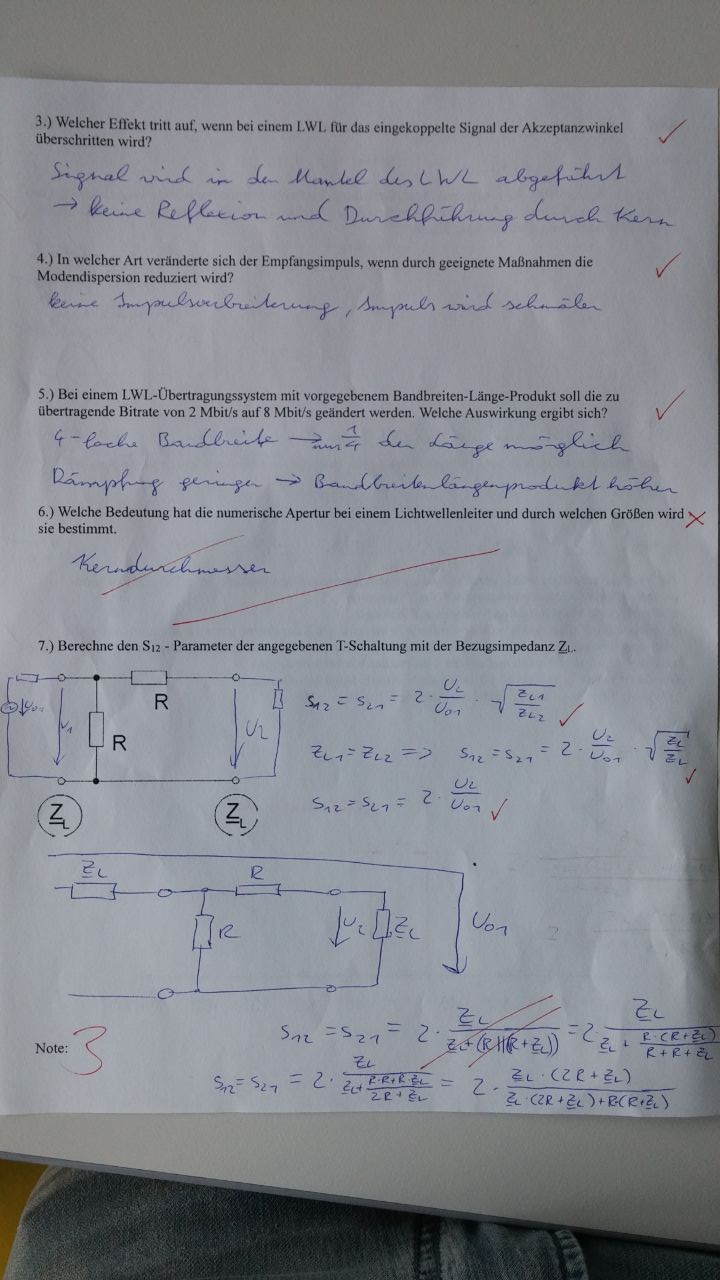 3.) Welcher Effekt tritt auf, wenn bei einem LWL für das eingekoppelte Signal der Akzeptanzwinkel
überschritten wird?
Signal wird in den Mantel des LWL abgeführt
→ keine Reflexion und Durchführung durch Kern
4.) In welcher Art veränderte sich der Empfangsimpuls, wenn durch geeignete Maßnahmen die
Modendispersion reduziert wird?
keine Impulsverbreiterung, Impuls wird schmäler
5.) Bei einem LWL-Übertragungssystem mit vorgegebenem Bandbreiten-Länge-Produkt soll die zu
übertragende Bitrate von 2 Mbit/s auf 8 Mbit/s geändert werden. Welche Auswirkung ergibt sich?
4-fache Bandbreite → nur 1/4 der Länge möglich
Dämpfung geringer → Bandbreitenlängenprodukt höher
6.) Welche Bedeutung hat die numerische Apertur bei einem Lichtwellenleiter und durch welchen Größen wird
sie bestimmt.
Kerndurchmesser
7.) Berechne den S12 - Parameter der angegebenen T-Schaltung mit der Bezugsimpedanz ZL.
U01
U1
R
R
U2
ZL
ZL
S12 = S21 = 2 · U2/U01 · √(ZL1/ZL2)
ZL1 = ZL2 => S12 = S21 = 2 · U2/U01 · √(ZL/ZL)
S12 = S21 = 2 · U2/U01
ZL
R
R
U2
ZL
U01
S12 = S21 = 2 · ZL/(ZL+(R||(R+ZL))) = 2 · ZL/(ZL + R·(R+ZL)/(R+R+ZL))
S12 = S21 = 2 · ZL/(ZL + (R·R+R·ZL)/(2R+ZL)) = 2 · ZL·(2R+ZL)/(ZL·(2R+ZL)+R(R+ZL))
Note: 3